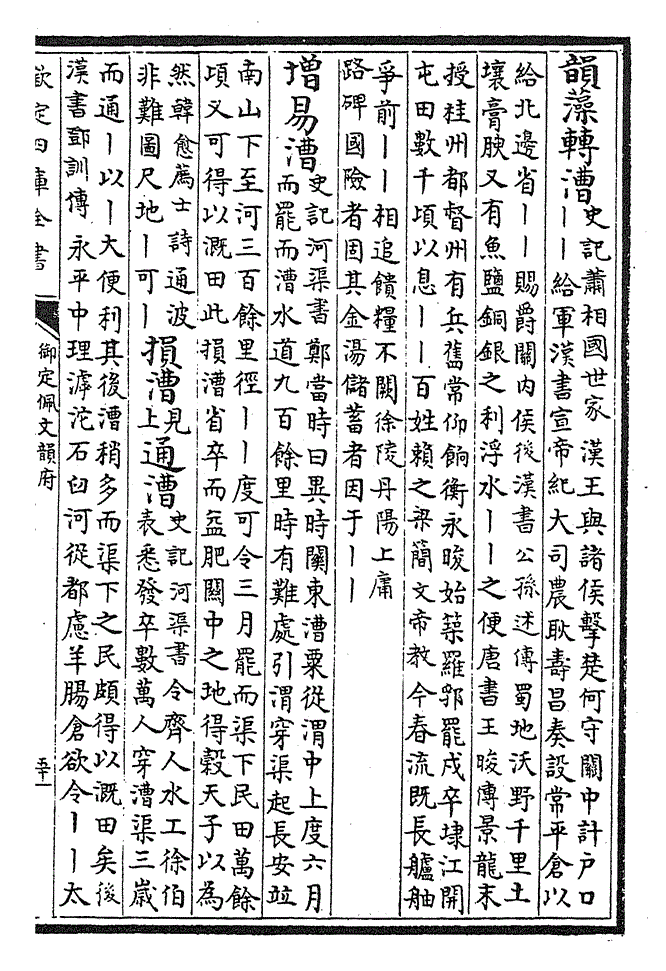 韻藻轉漕史記蕭相國世家漢王與諸侯擊楚何守關中計戶口
丨丨給軍漢書宣帝紀大司農耿壽昌奏設常平倉以
給北邊省丨丨賜爵關內侯後漢書公孫述傳蜀地沃野千里土
壤膏腴又有魚鹽銅銀之利浮水丨丨之便唐書王晙傳景龍末
授桂州都督州有兵舊常仰餉衡永晙始築羅郛罷戍卒埭江開
屯田數千頃以息丨丨百姓賴之梁簡文帝教今春流既長艫舳
爭前丨丨相追饋糧不闕徐陵丹陽上庸
路碑國險者固其金湯儲蓄者因于丨丨
增易漕史記河渠書鄭當時曰異時關東漕粟從渭中上度六月
而罷而漕水道九百餘里時有難處引渭穿渠起長安竝
南山下至河三百餘里徑丨丨度可令三月罷而渠下民田萬餘
頃又可得以溉田此損漕省卒而益肥關中之地得穀天子以為
然韓愈薦士詩通波
非難圖尺地丨可丨
損漕見上
通漕史記河渠書令齊人水工徐伯
表悉發卒數萬人穿漕渠三歲
而通丨以丨大便利其後漕稍多而渠下之民頗得以溉田矣後
漢書鄧訓傳永平中理滹沱石臼河從都慮羊腸倉欲令丨丨太
欽定四庫全書
御定佩文韻府